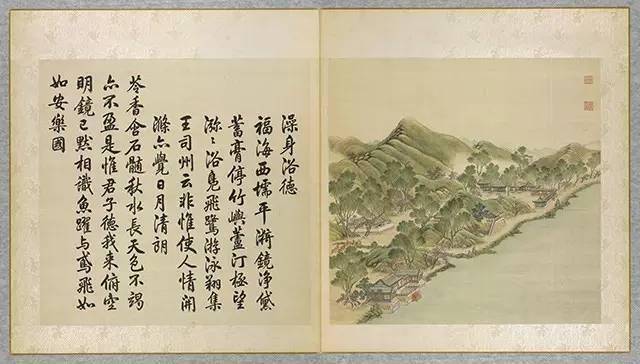 澡身浴德
福海西壖平漪鏡淨黛
蓄膏停竹嶼蘆汀極望
瀰〻浴鳧飛鷺游泳翔集
王司州云非惟使人情開
滌亦覺日月清朗
苓香含石髓秋水長天色不竭
亦不盈是惟君子德我來俯空
明鏡已默相識魚躍與鳶飛如
如安樂國